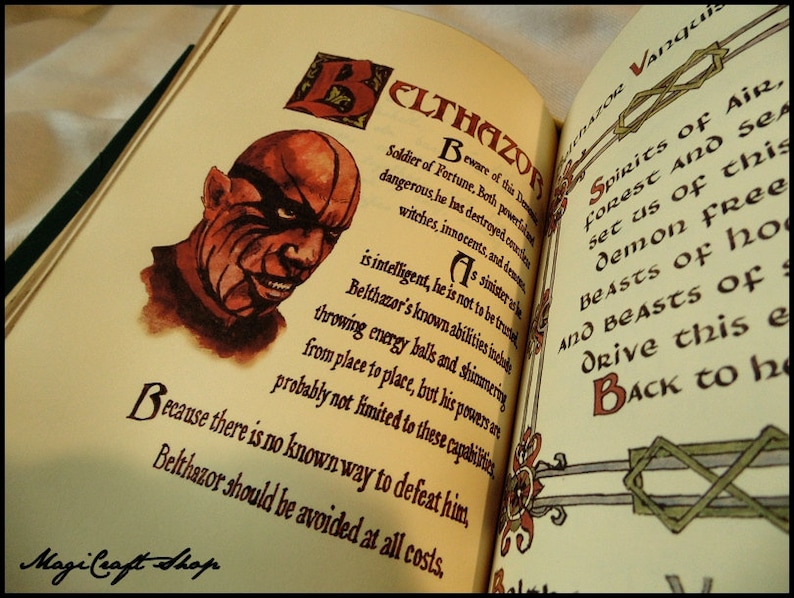 BELTHAZOR
Beware of this Demonic
Soldier of Fortune. Both powerful and
dangerous, he has destroyed countless
witches, innocents, and demons.
As sinister as he
is intelligent, he is not to be trusted.
Belthazor's known abilities include
throwing energy balls and shimmering
from place to place, but his powers are
probably not limited to these capabilities.
Because there is no known way to defeat him,
Belthazor should be avoided at all costs.
Belthazor Vanquis
Spirits of Air,
Forest and Sea
Set us of this
Demon free
Beasts of hoo
And beasts of s
Drive this e
Back to he
MagiCraft Shop